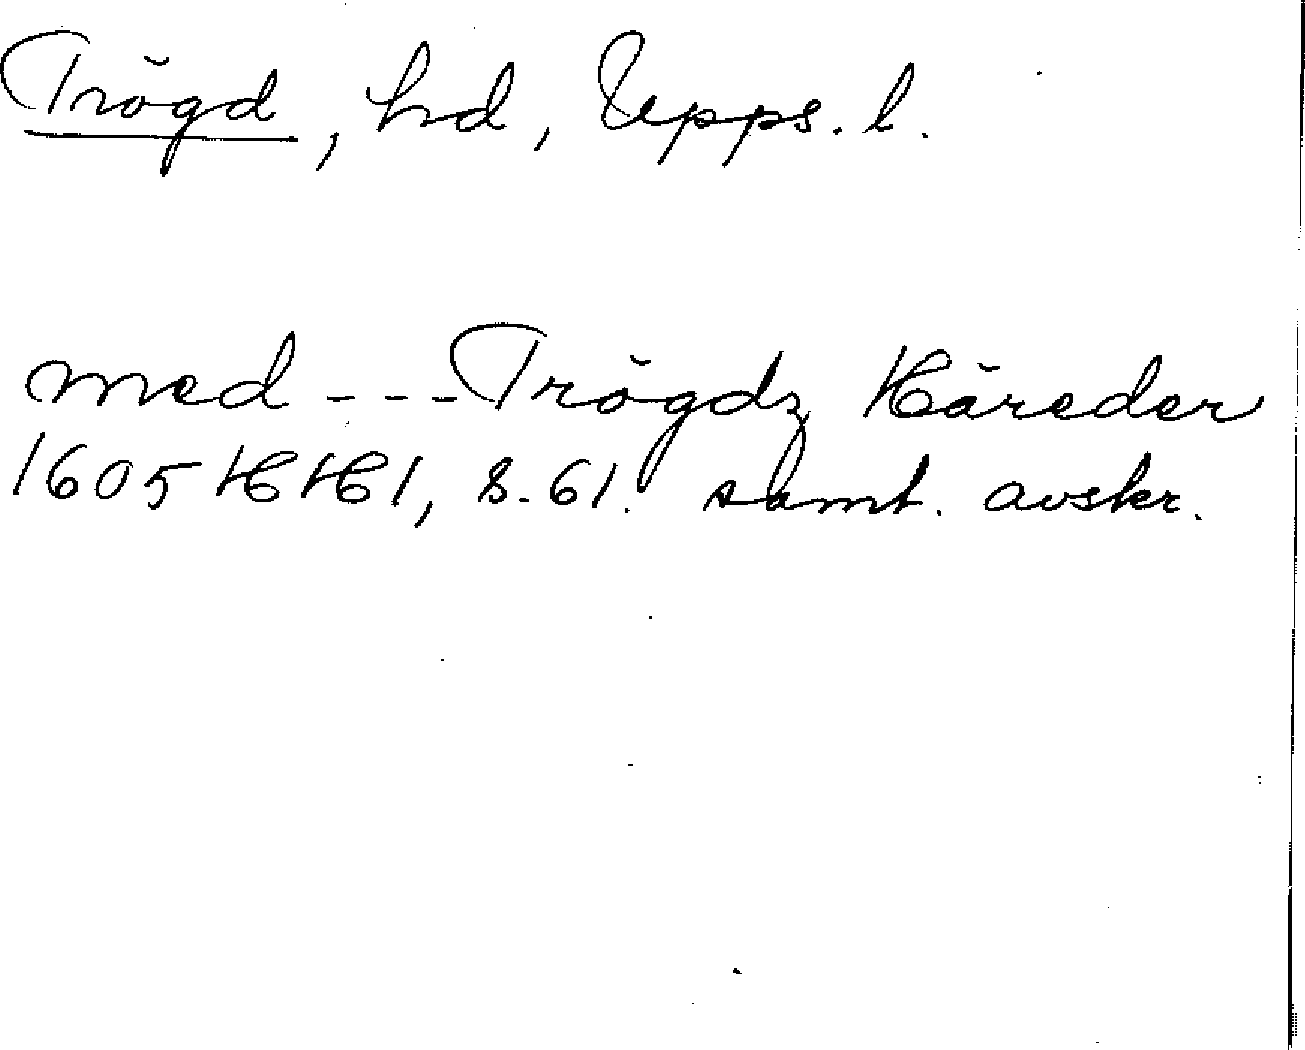 Trögd, hd, Upps. l.
med --- Trögdz Häreder
1605 HH1, s. 61. samt. avskr.